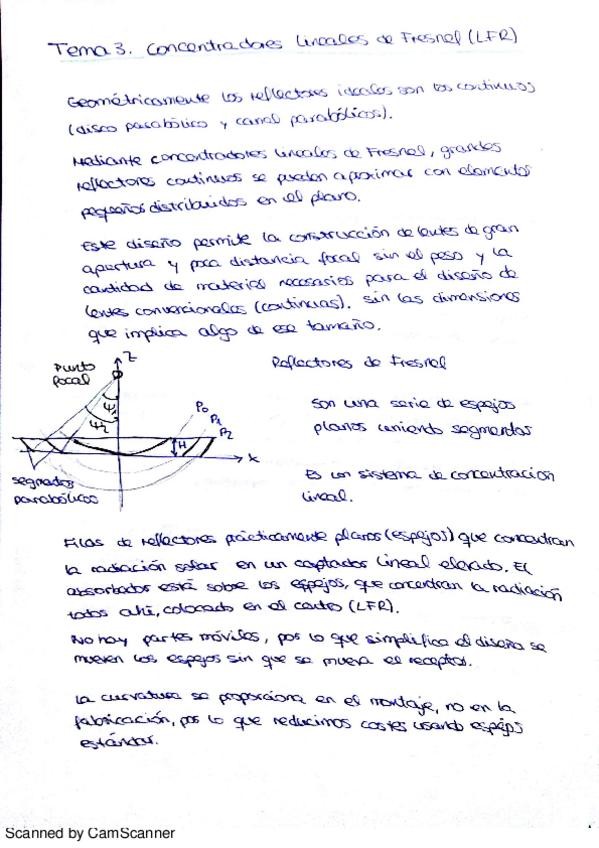 Tema 3. Concentradores lineales de Fresnel (LFR)
Geométricamente los reflectores ideales son los continuos
(disco parabólico y canal parabólicos).
Mediante concentradores lineales de Fresnel, grandes
reflectores continuos se pueden aproximar con elementos
pequeños distribuidos en el plano.
Este diseño permite la construcción de lentes de gran
apertura y poca distancia focal sin el peso y la
cantidad de material necesarios para el diseño de
lentes convencionales (continuas). sin las dimensiones
que implica algo de ese tamaño.
Reflectores de Fresnel
Punto
focal
Z
Ψ1
Ψ2
P0
P1
P2
H
x
segmentos
parabólicos
Son una serie de espejos
planos uniendo segmentos
Es un sistema de concentración
lineal.
Filas de reflectores prácticamente planos (espejos) que concentran
la radiación solar en un captador lineal elevado. El
absorbedor está sobre los espejos, que concentran la radiación
todos ahí, colocado en el centro (LFR).
No hay partes móviles, por lo que simplifica el diseño se
mueven los espejos sin que se mueva el receptor.
La curvatura se proporciona en el montaje, no en la
fabricación, por lo que reducimos costes usando espejos
estándar.
Scanned by CamScanner